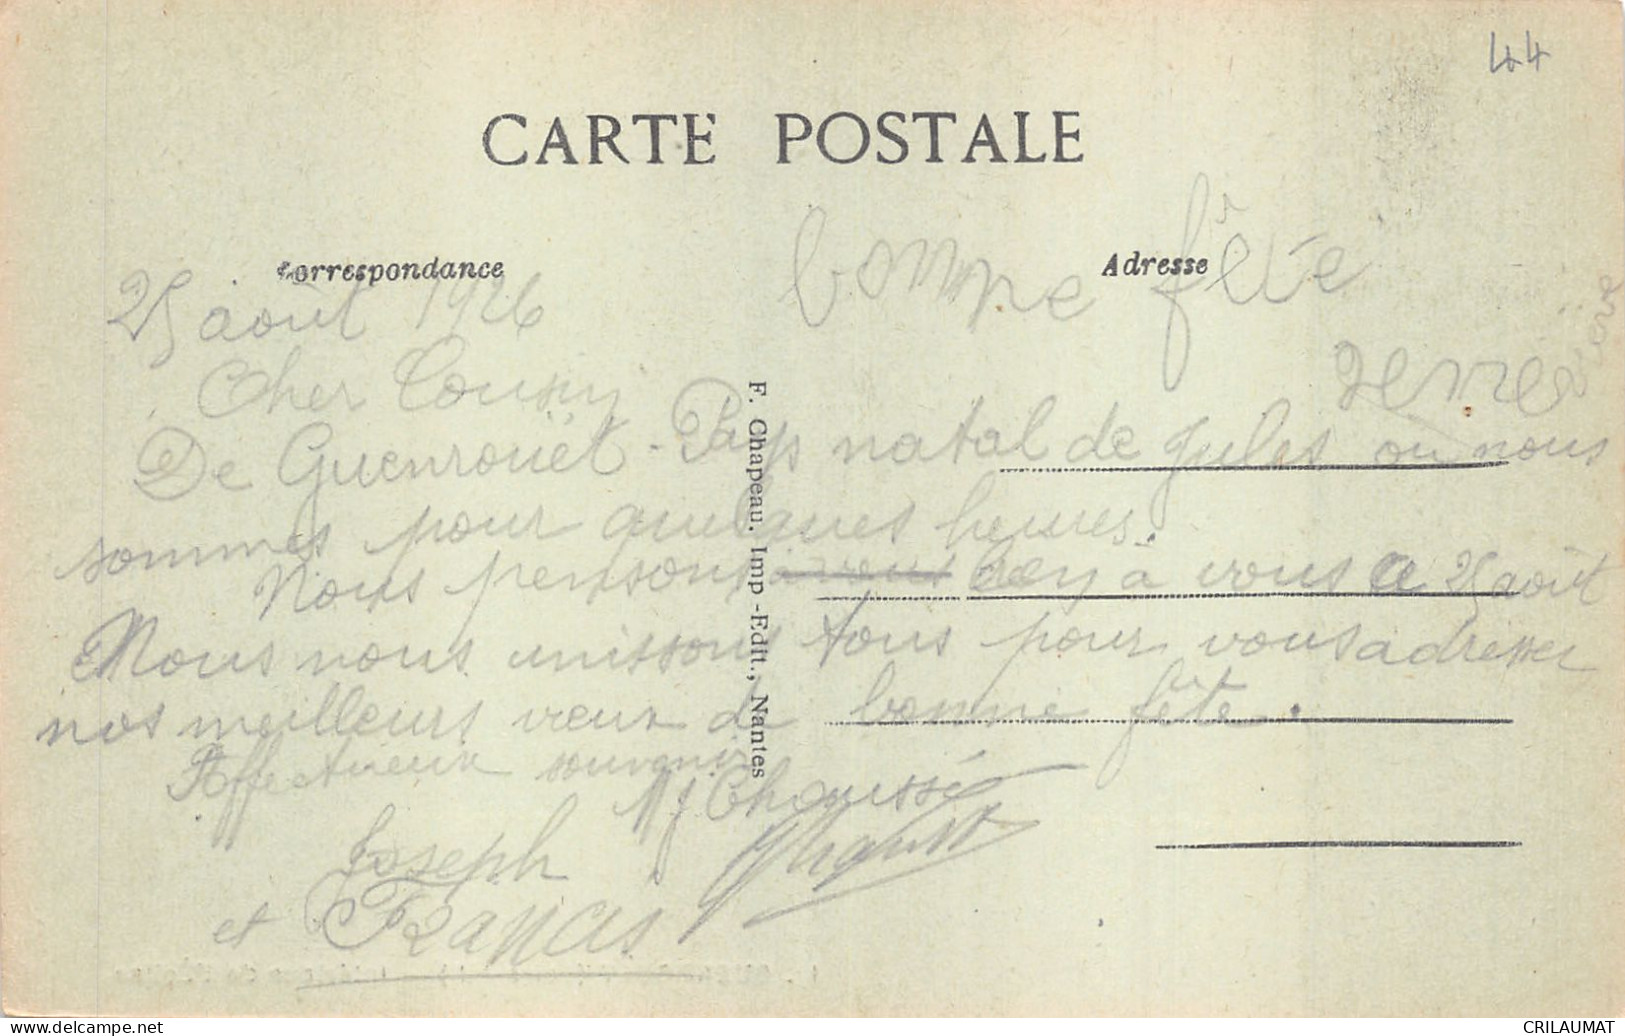 44
CARTE POSTALE
Correspondance
Adresse
bonne fête
25 août 1926
Cher Cousin
De Guenrouët - Pays natal de Jules où nous
sommes pour quelques heures.
Nous pensons à vous à vous ce 25 août
Nous nous unissons tous pour vous adresser
nos meilleurs vœux de bonne fête.
Affectueux souvenir
MJ Chaussé
Joseph
et Francis
F. Chapeau, Imp.-Edit., Nantes
www.delcampe.net
CRILAUMAT